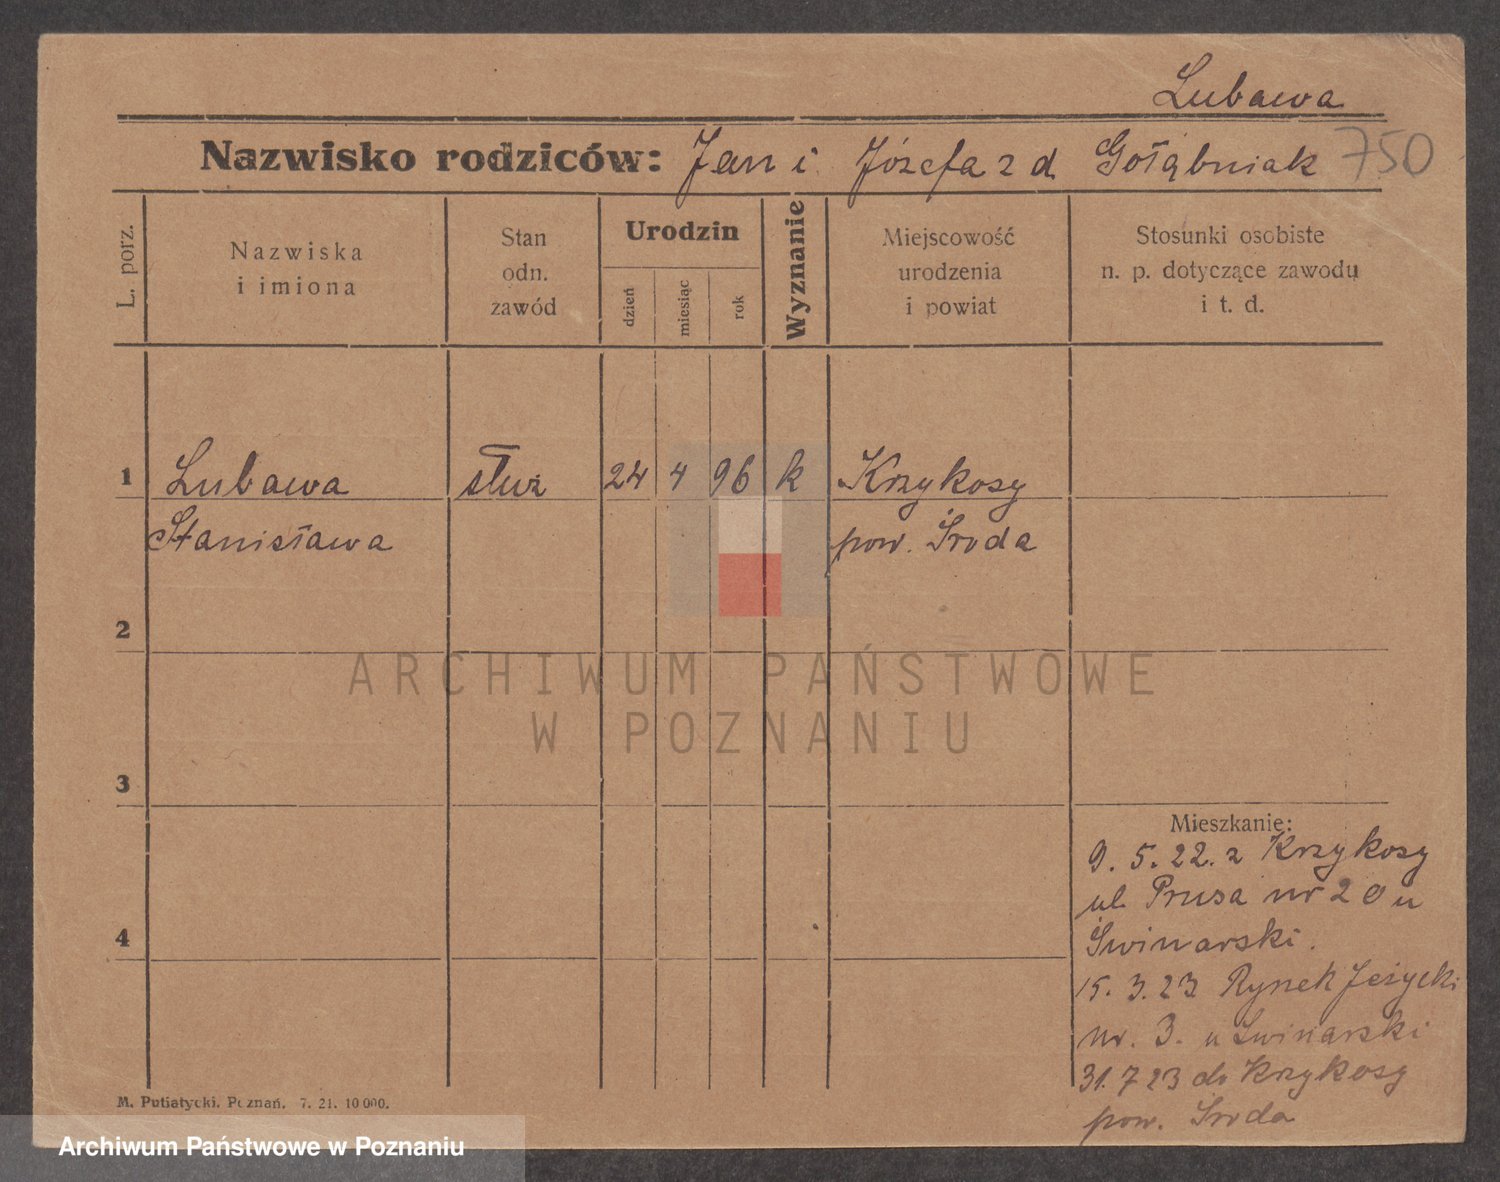 Lubawa
Nazwisko rodziców: Jan i Józefa z d Gołąbniak 750
L. porz.
Nazwiska
i imiona
Stan
odn.
zawód
Urodzin
dzień
miesiąc
rok
Wyznanie
Miejscowość
urodzenia
i powiat
Stosunki osobiste
n. p. dotyczące zawodu
i t. d.
1 Lubawa służ 24 4 96 k Krzykosy
Stanisława pow. Środa
2
ARCHIWUM PAŃSTWOWE
W POZNANIU
3
Mieszkanie:
9. 5. 22. z Krzykosy
ul. Prusa nr 20 u
4
Świnarski.
15. 3. 23 Rynek Jeżycki
nr. 3. u Świnarski
31. 7 23 do Krzykosy
pow. Środa
M. Putiatycki. Poznań. 7. 21. 10 000.
Archiwum Państwowe w Poznaniu